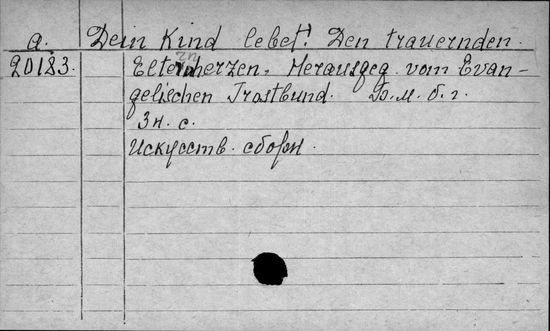 a. Dein Kind lebet! Den trauernden
20183. Elternherzen. Herausgeg. vom Evan-
gelischen Trostbund. Б.м. б.г.
3н. с.
Искусств. сборн.